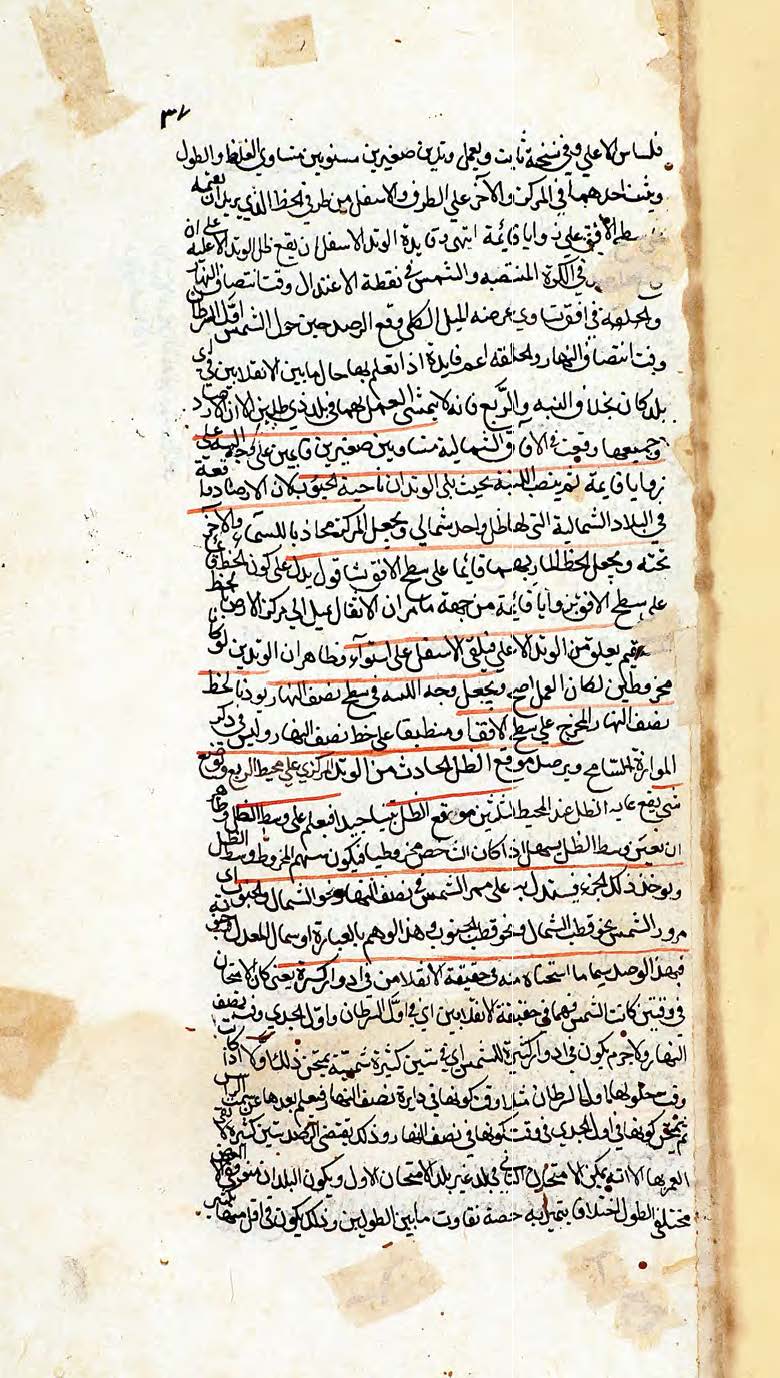 ٣٧
فلساس الاعلي وفي نسخة ثابت ويعمل وتدين صغيرين مستويين متساوي الغلظ والطول
ويثبت احدهما في المركز والآخر علي الطرف الاسفل من طرفي الخط الذي يريد ان يقيمه
سطح الافق علي زوايا قائمة انتهي وفايدة الوتد الاسفل ان يقع ظل الوتد الاعلي عليه
في الكرة المنتصبه والشمس في نقطة الاعتدال وقت انتصاف النهار
والحلقه في افق تساوي عرضه الميل الكلي وقع الرصد حين حول الشمس اول السرطان
وقت انتصاف النهار والحلقه اعم فايدة اذ تعلم بها حال ما بين الانقلابين في اي
بلد كان بخلاف اللبنه والربع فانه لا يتمشي العمل بهما في بلد ذي ظلين الا ان الارصاد
وجميعها وقعت في الآفاق الشمالية متساويين صغيرين قايمين علي وجه اللبنه علي
زوايا قايمة ثم ينصب اللبنة بحيث يلي الوتدان ناحية الجنوب لان الارصاد واقعة
في البلاد الشمالية التي لها ظل واحد شمالي ويجعل المركز محاذيا للسماء والآخر
تحته ويجعل الخط المار بهما قايما علي سطح الافق بشاقول يدل علي كون الخط
علي سطح الافق بزوايا قايمة من جهة ما مر ان الاثقال تميل الي مركز الارض بخط
مستقيم يعلق من الوتد الاعلي فيلقي الاسفل علي استوآء وظاهر ان الوتدين لو كانا
مخروطين لكان العمل اصح ويجعل وجه اللبنه في سطح نصف النهار يوذيا لخط
نصف النهار المخرج علي سطح الافق او منطبقا علي خط نصف النهار وليس في ذكر
الموازة المسامح ويرصد موقع الظل الحادث من الوتد المركزي علي محيط الربع ويوضع
شي يقع عليه الظل عند المحيط ليتبين موقع الظل تبيينا جيدا فيعلم علي وسط الظل وظاهر
ان تعيين وسط الظل يسهل اذا كان الشخص مخروطيا فيكون سهم المخروط وسط الظل
ويوخذ ذلك الجزء فيستدل به علي ممر الشمس في نصف النهار ونحو الشمال والجنوب اي
مرور الشمس نحو قطب الشمال ونحو قطب الجنوب وهذا الوهم بالعبارة او سمال المعدل وجنوبه
فبهذا الوصل سيما ما استحناه منه في حقيقة الانقلابين في ادوار كثيرة يعني كان الامتحان
في وقتين كانت الشمس فيهما في حقيقة الانقلابين اي في اول السرطان واول الجدي وقت نصف
النهار ولا جرم يكون في ادوار كثيرة للشمس اي في سنين كثيرة شمسية يمتحن ذلك اولا اذا كانت
وقت حلولها اول السرطان مثلا وقت كونها في دايرة نصف النهار فيعلم بعدها عن سمت الراس
ثم يمتحن كونها في اول الجدي في وقت كونها في نصف النهار وذلك يقتضي الرصد سنين كثيرة لا يفي
العمر بها الا انه يمكن الامتحان الثاني في بلد غير بلد الامتحان الاول ويكون البلدان متفقي العرض
مختلفي الطول اختلافا يتميز به حصة تفاوت ما بين الطولين وذلك يكون في اقل منها بكثير